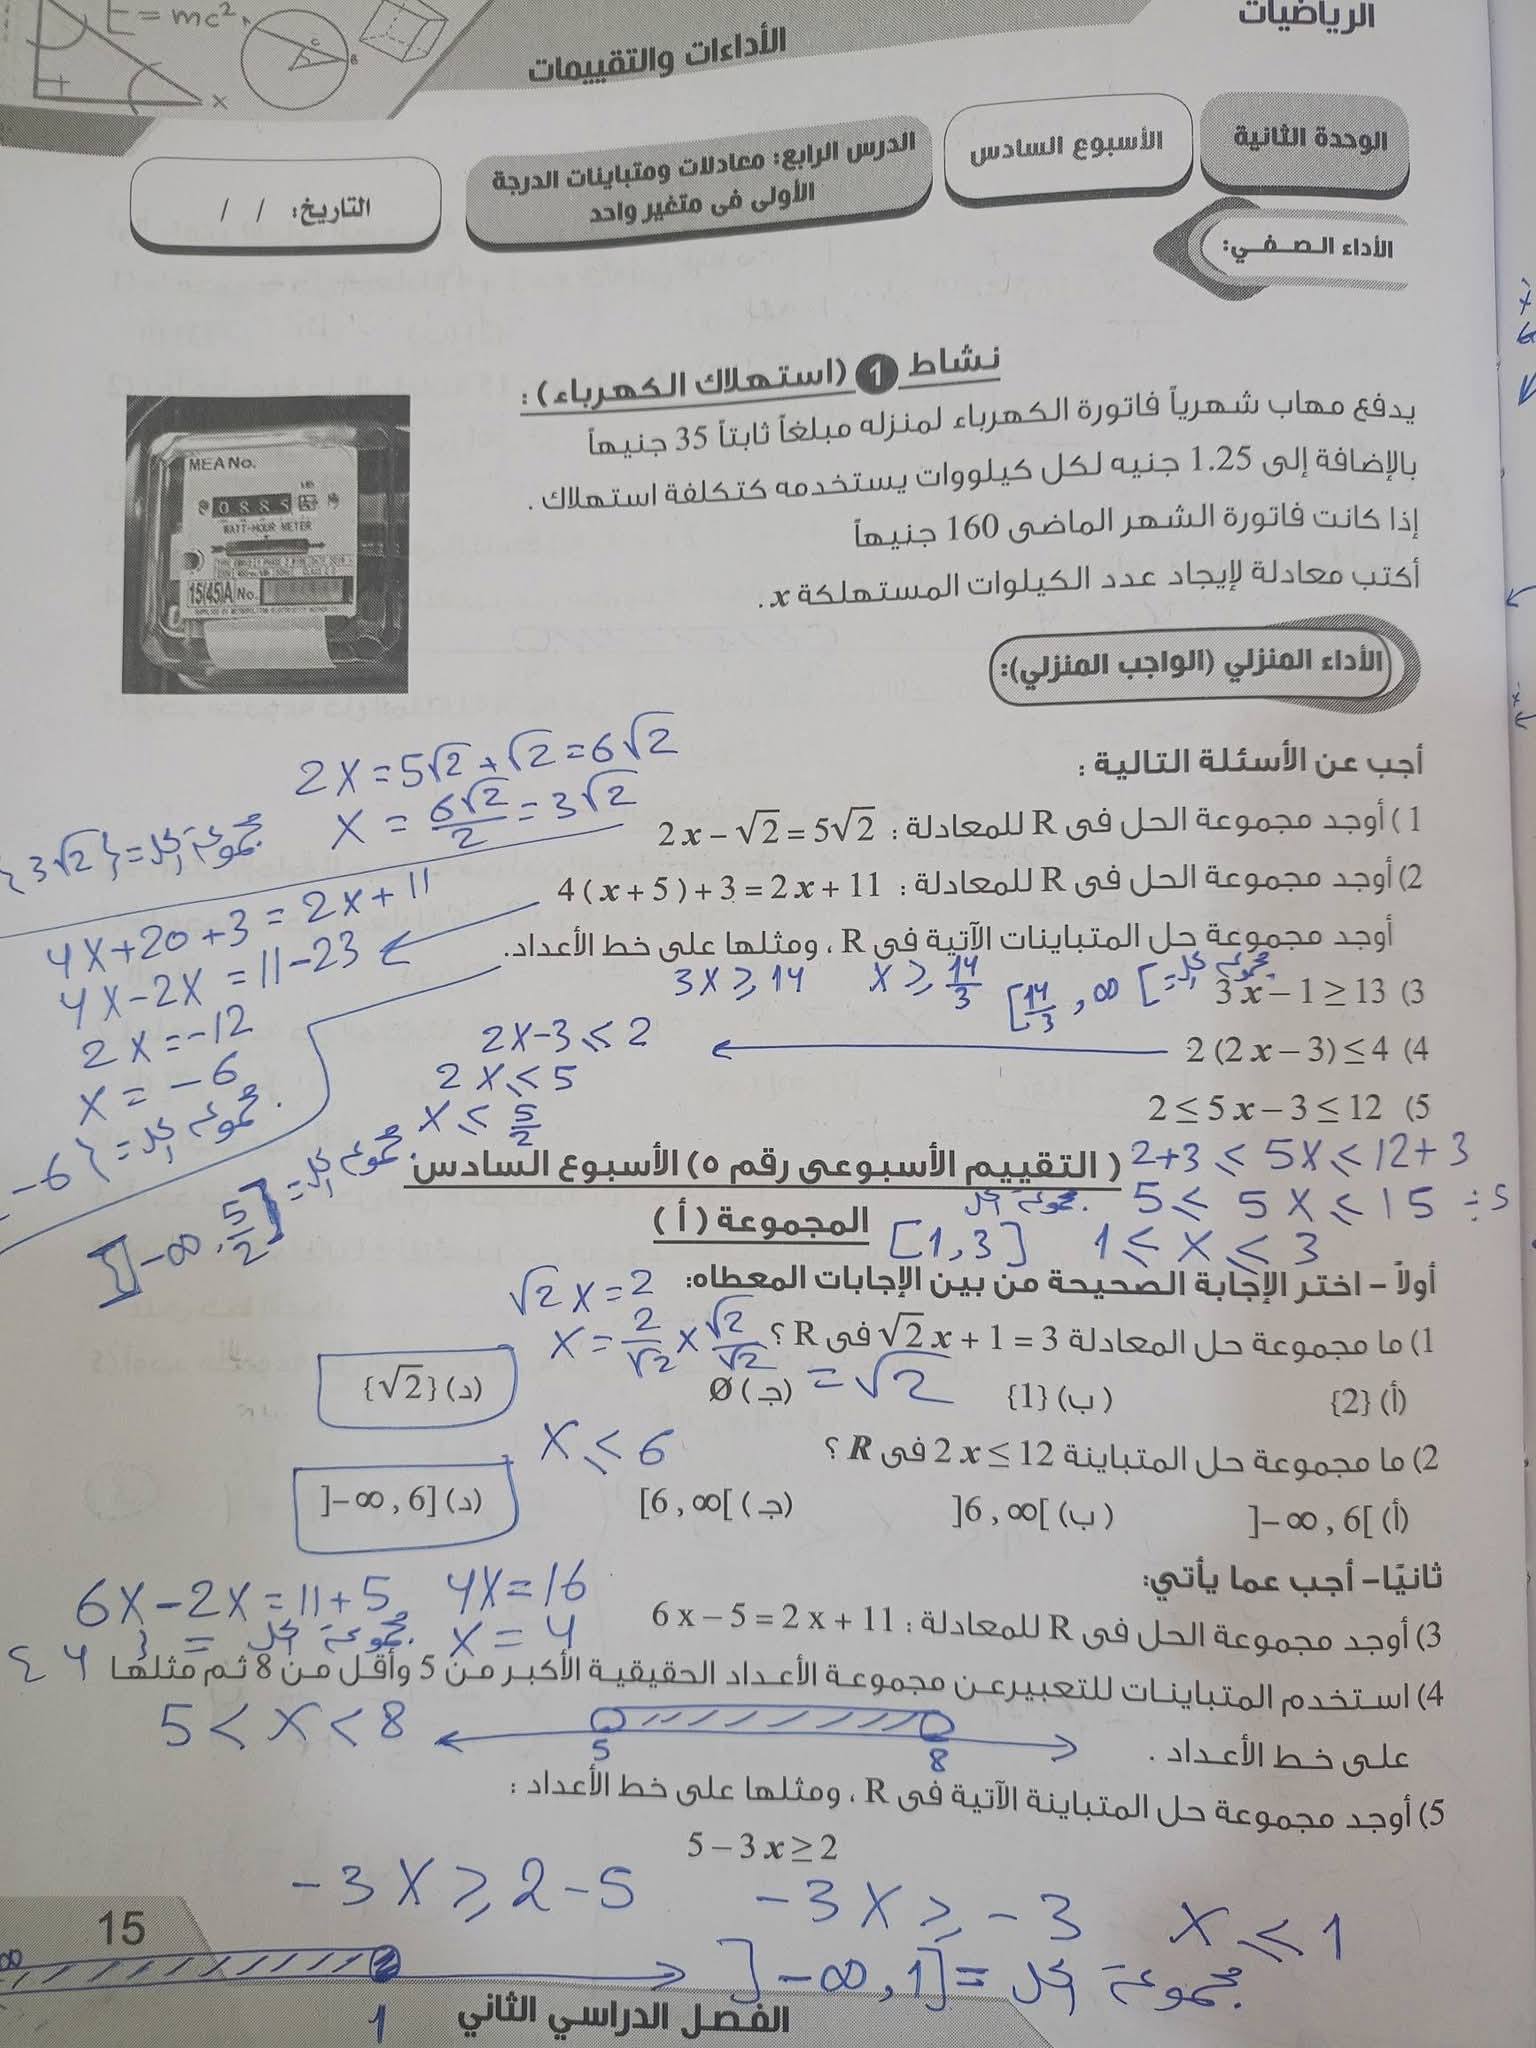 الرياضيات
E = mc²
الأداءات والتقييمات
الوحدة الثانية
الأسبوع السادس
الدرس الرابع: معادلات ومتباينات الدرجة الأولى فى متغير واحد
التاريخ: / /
الأداء الصفي:
نشاط 1 (استهلاك الكهرباء):
يدفع مهاب شهرياً فاتورة الكهرباء لمنزله مبلغاً ثابتاً 35 جنيهاً
بالإضافة إلى 1.25 جنيه لكل كيلووات يستخدمه كتكلفة استهلاك .
إذا كانت فاتورة الشهر الماضى 160 جنيهاً
أكتب معادلة لإيجاد عدد الكيلوات المستهلكة x.
MEA No.
WATT-HOUR METER
15(45)A No.
الأداء المنزلي (الواجب المنزلي):
أجب عن الأسئلة التالية :
2x = 5√2 + √2 = 6√2
1) أوجد مجموعة الحل فى R للمعادلة : 2x – √2 = 5√2
x = 6√2/2 = 3√2
مجموعة الحل = {3√2}
2) أوجد مجموعة الحل فى R للمعادلة : 4(x+5)+3 = 2x+11
4x+20+3 = 2x+11
4x-2x = 11-23
2x = -12
x = -6
مجموعة الحل = {-6
أوجد مجموعة حل المتباينات الآتية فى R ، ومثلها على خط الأعداد.
3) 3x – 1 ≥ 13
3x ≥ 14 x ≥ 14/3 مجموعة الحل = [14/3 , ∞[
4) 2(2x – 3) ≤ 4
2x-3 ≤ 2
2x ≤ 5
x ≤ 5/2
مجموعة الحل = ]-∞ , 5/2]
5) 2 ≤ 5x – 3 ≤ 12
2+3 ≤ 5x ≤ 12+3
5 ≤ 5x ≤ 15 ÷5
1 ≤ x ≤ 3
مجموعة الحل [1,3]
( التقييم الأسبوعى رقم ٥) الأسبوع السادس
المجموعة ( أ )
أولاً – اختر الإجابة الصحيحة من بين الإجابات المعطاه:
√2 x = 2
1) ما مجموعة حل المعادلة √2 x + 1 = 3 فى R ؟
x = 2/√2 × √2/√2 = √2
(أ) {2} (ب) {1} (جـ) Ø (د) {√2}
2) ما مجموعة حل المتباينة 2x ≤ 12 فى R ؟
x ≤ 6
(أ) ]–∞ , 6[ (ب) ]6 , ∞[ (جـ) [6 , ∞[ (د) ]–∞ , 6]
ثانيًا– أجب عما يأتي:
3) أوجد مجموعة الحل فى R للمعادلة : 6x – 5 = 2x + 11
6x-2x = 11+5 4x = 16
x = 4
مجموعة الحل = {4}
4) استخدم المتباينات للتعبيرعن مجموعة الأعداد الحقيقية الأكبر من 5 وأقل من 8 ثم مثلها
على خط الأعداد .
5 < x < 8
5 8
5) أوجد مجموعة حل المتباينة الآتية فى R ، ومثلها على خط الأعداد :
5 – 3x ≥ 2
-3x ≥ 2-5 -3x ≥ -3 x ≤ 1
مجموعة الحل = ]-∞,1]
∞ 1
15
الفصل الدراسي الثاني